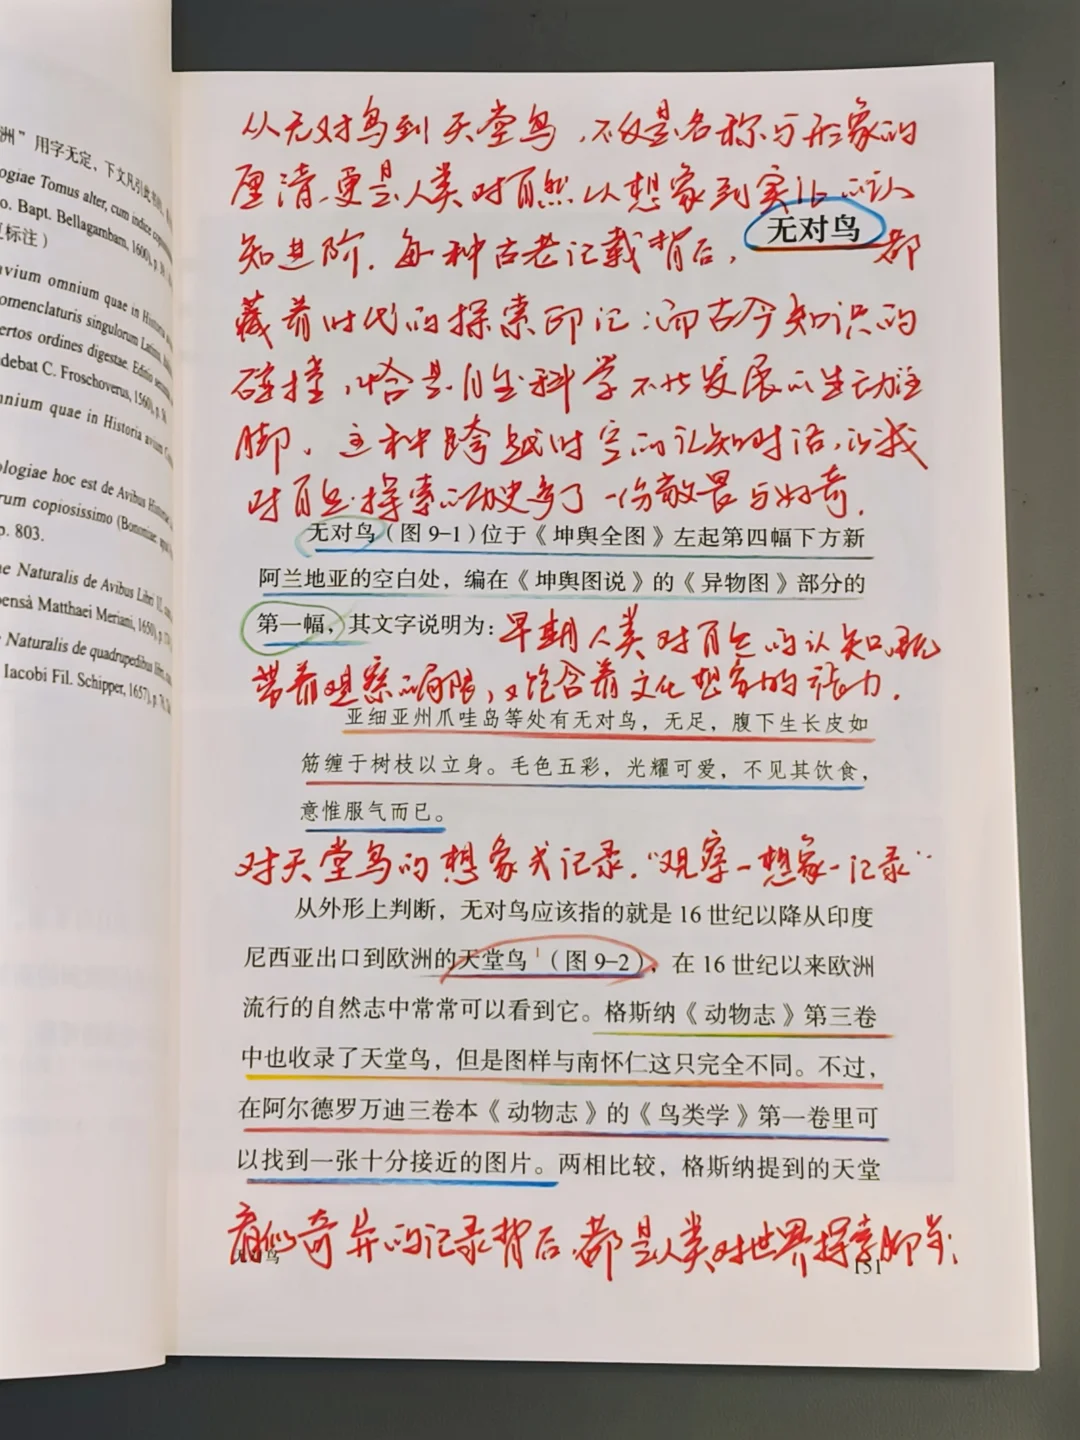 洲”用字无定，下文凡引此书
logiae Tomus alter, cum indice
o. Bapt. Bellagambam, 1600), p.
标注）
avium omnium quae in Historia
omenclaturis singulorum Latinis,
ertos ordines digestae. Editio
debat C. Froschoverus, 1560), p.
mnium quae in Historia avium
ologiae hoc est de Avibus Historiae
rum copiosissimo (Bononiae
p. 803.
ae Naturalis de Avibus Libri
pensà Matthaei Meriani, 1650), p.
Naturalis de quadrupedibus libri,
Iacobi Fil. Schipper, 1657), p.
从无对鸟到天堂鸟，不仅是名称与形象的
厘清，更是人类对自然从想象到实证的认
无对鸟
知进阶。每种古老记载背后，都
藏着时代的探索印记；而古今知识的
碰撞，恰是自然科学不断发展的生动注
脚。这种跨越时空的认知对话，让我
对自然探索的历史多了一份敬畏与好奇。
无对鸟（图 9-1）位于《坤舆全图》左起第四幅下方新
阿兰地亚的空白处，编在《坤舆图说》的《异物图》部分的
第一幅，其文字说明为：
早期人类对自然的认知，既
带着观察的局限，又饱含着文化想象的张力。
亚细亚州爪哇岛等处有无对鸟，无足，腹下生长皮如
筋缠于树枝以立身。毛色五彩，光耀可爱，不见其饮食，
意惟服气而已。
对天堂鸟的想象式记录。“观察—想象—记录”
从外形上判断，无对鸟应该指的就是 16 世纪以降从印度
尼西亚出口到欧洲的天堂鸟（图 9-2），在 16 世纪以来欧洲
流行的自然志中常常可以看到它。格斯纳《动物志》第三卷
中也收录了天堂鸟，但是图样与南怀仁这只完全不同。不过，
在阿尔德罗万迪三卷本《动物志》的《鸟类学》第一卷里可
以找到一张十分接近的图片。两相比较，格斯纳提到的天堂
看似奇异的记录背后，都是人类对世界探索脚步
无对鸟
151